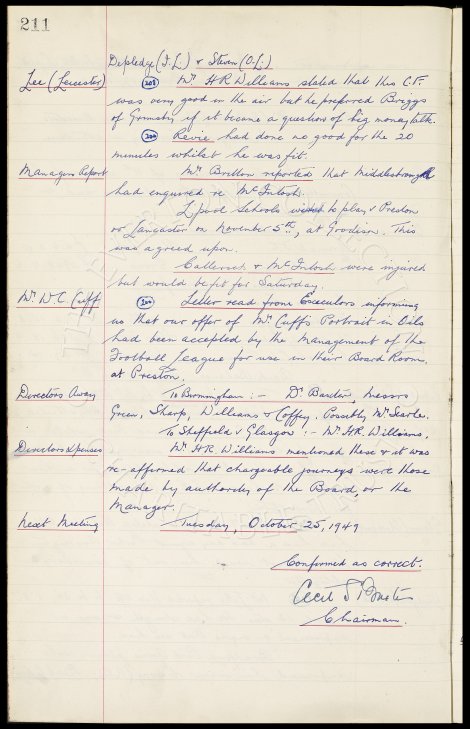 211
Depledge (I.L.) & Steven (O.L.)
Lee (Leicester) 208 Mr. H.R. Williams stated that this C.F.
was very good in the air but he preferred Briggs
of Grimsby if it became a question of big money talk.
Revie had done no good for the 20
minutes whilst he was fit.
Managers Report Mr. Britton reported that Middlesbrough
had enquired re McIntosh.
L'pool Schools wished to play v Preston
or Lancaster on November 5th, at Goodison. This
was agreed upon.
Catterick & McIntosh were injured
but would be fit for Saturday.
Mr. W.C. Cuff Letter read from Executors informing
us that our offer of Mr. Cuff's Portrait in Oils
had been accepted by the Management of the
Football League for use in their Board Room,
at Preston.
Directors Away To Birmingham :- Dr. Baxter, Messrs
Green, Sharp, Williams & Coffey. Possibly Mr. Searle.
To Sheffield v Glasgow :- Mr. H.R. Williams.
Directors Xpenses Mr. H.R. Williams mentioned these & it was
re-affirmed that chargeable journeys were those
made by authority of the Board, or the
Manager.
Next Meeting Tuesday, October 25, 1949
Confirmed as correct.
Cecil S Baxter
Chairman.